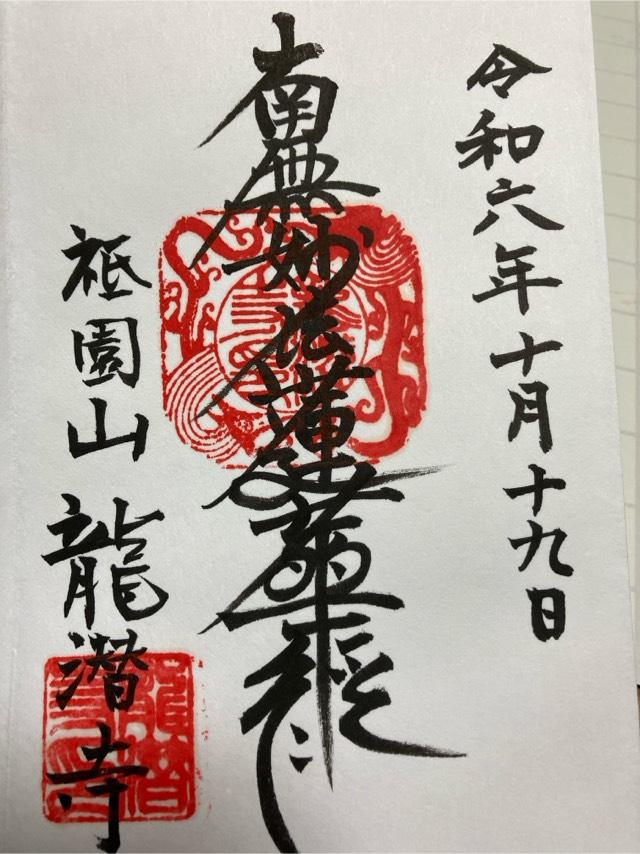 令和六年十月十九日
南無妙法蓮華経
祇園山 龍潜寺